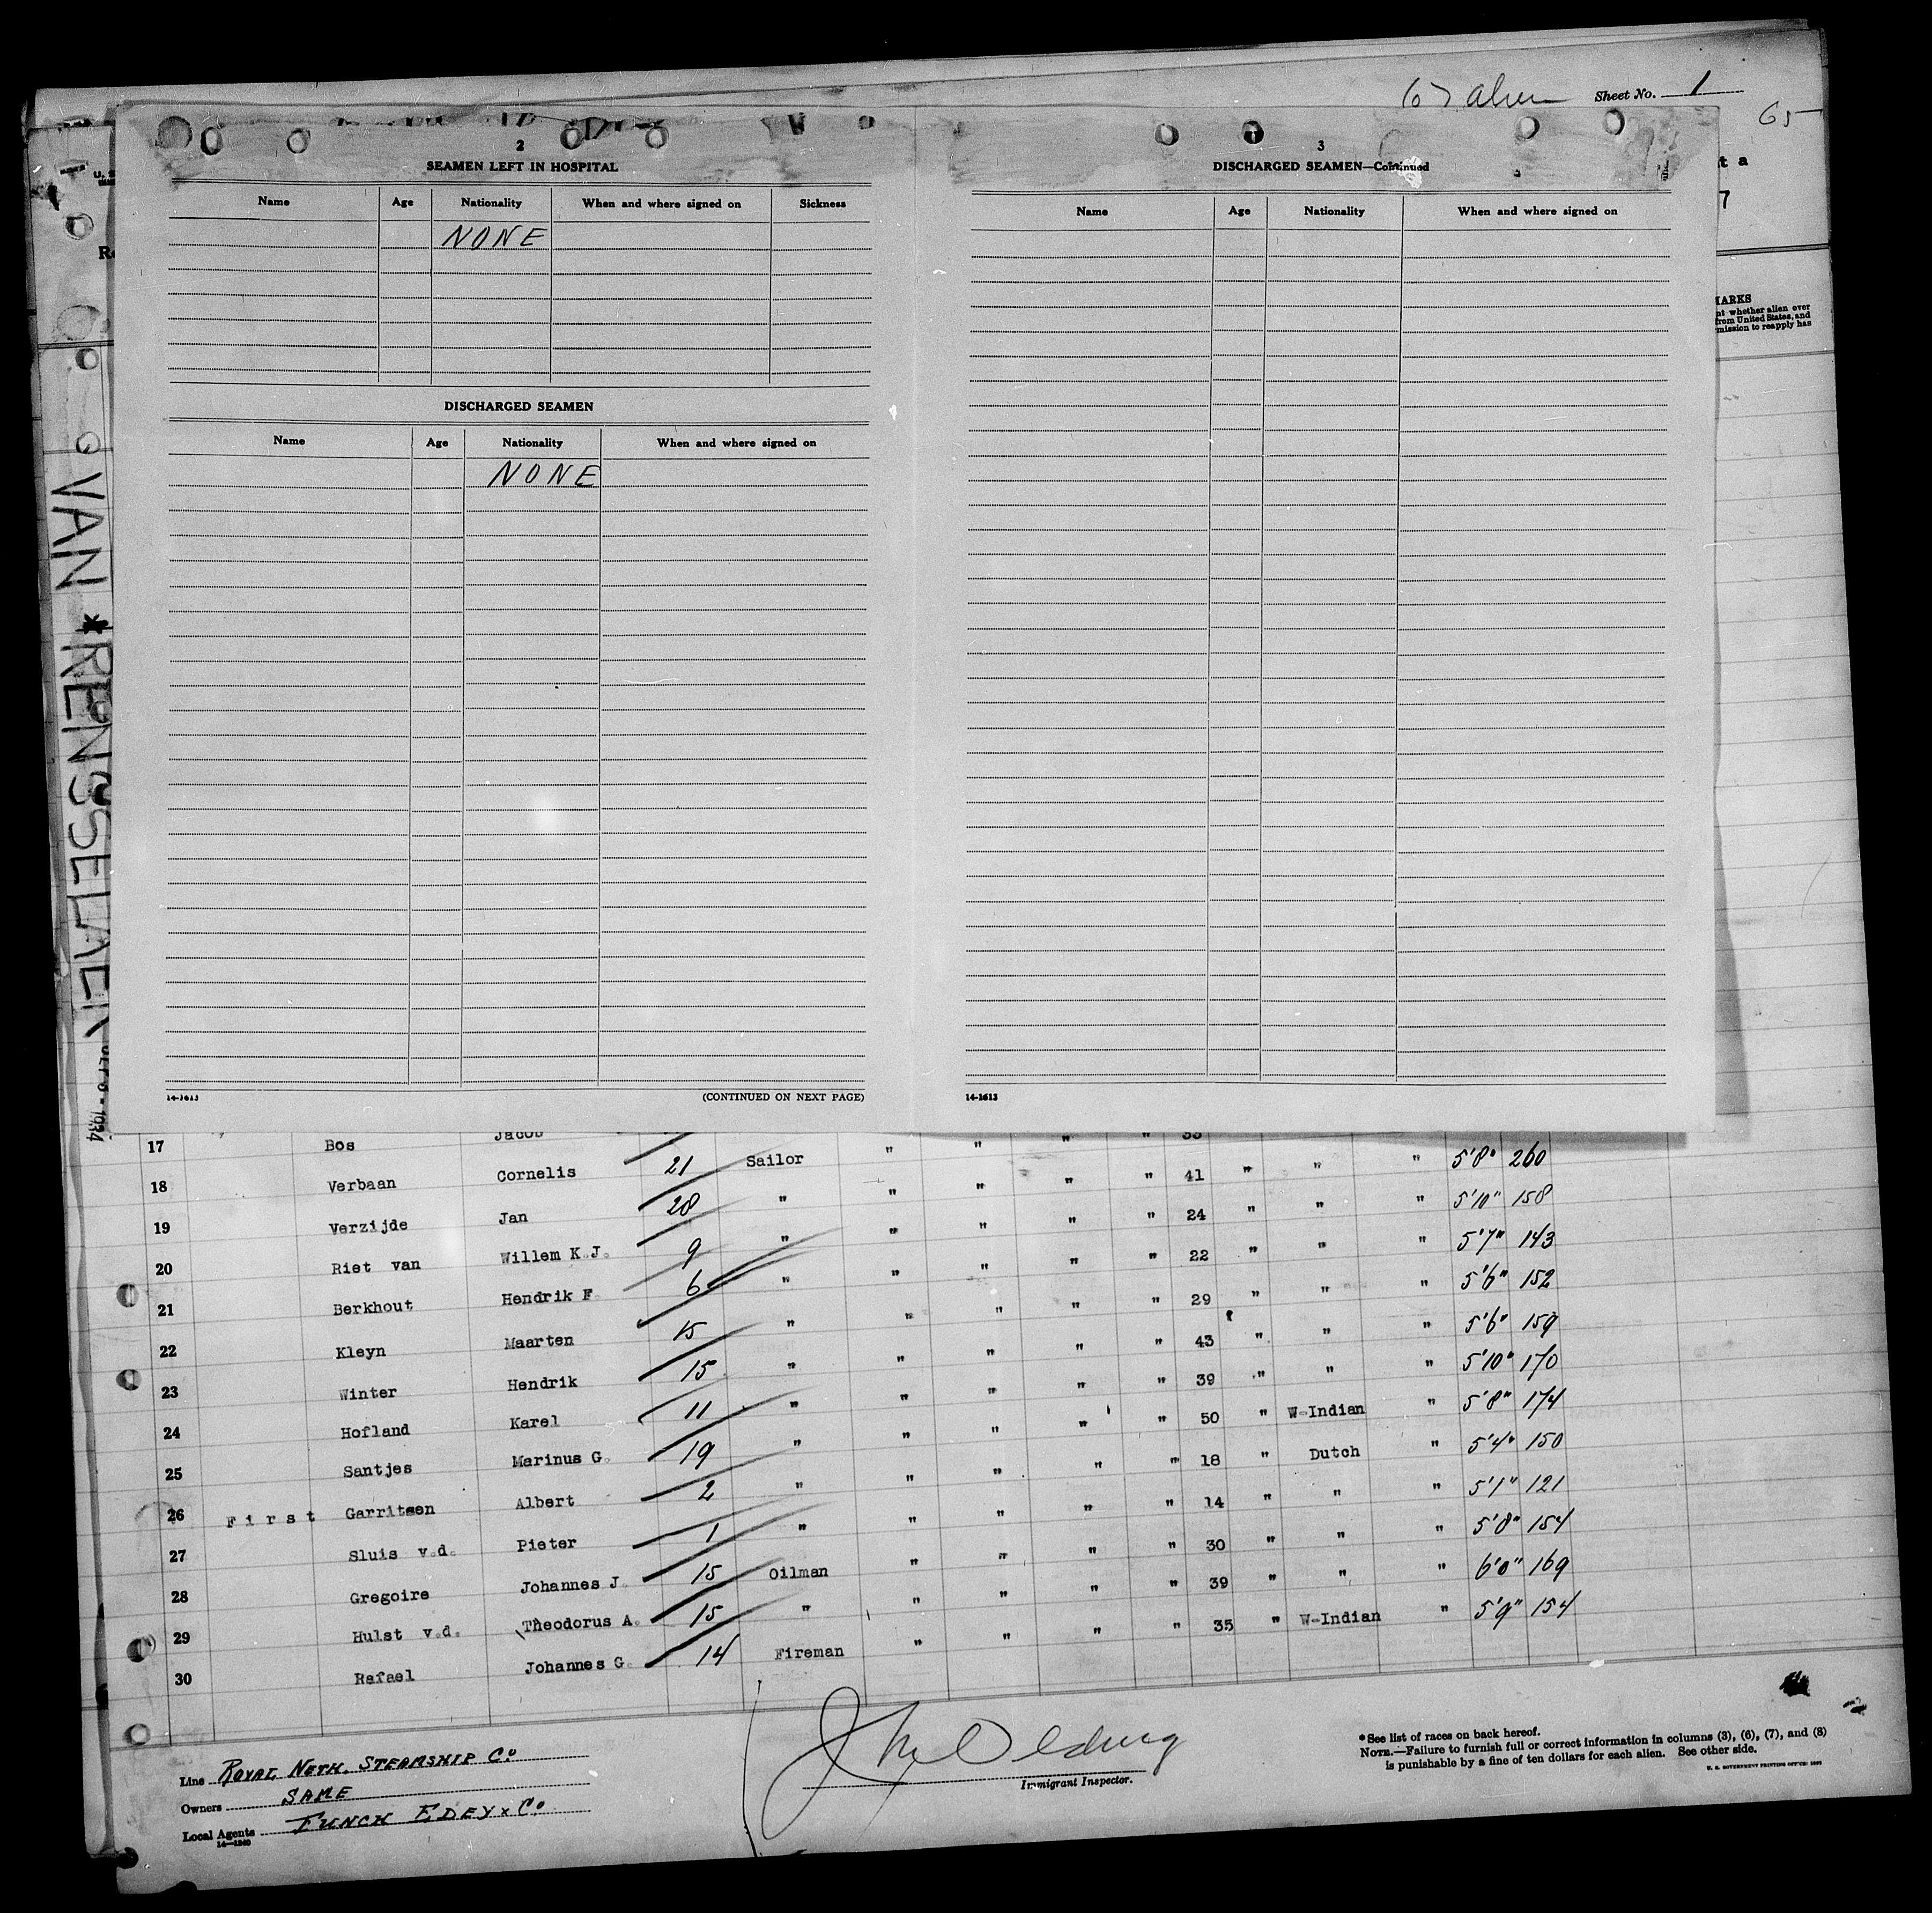 Sheet No. 1
65
2
SEAMEN LEFT IN HOSPITAL
Name Age Nationality When and where signed on Sickness
NONE
DISCHARGED SEAMEN
Name Age Nationality When and where signed on
NONE
14-1613 (CONTINUED ON NEXT PAGE)
3
DISCHARGED SEAMEN—Continued
Name Age Nationality When and where signed on
14-1613
whether alien over
from United States, and
to reapply has
VAN * RENSSELAER
1934
17 Bos Jacob
18 Verbaan Cornelis 21 Sailor " " " "
19 Verzijde Jan 28 " " " " " 41 " " " 5'8" 260
20 Riet van Willem K.J. 9 " " " " " 24 " " " 5'10" 158
21 Berkhout Hendrik F. 6 " " " " " 22 " " " 5'7" 143
22 Kleyn Maarten 15 " " " " " 29 " " " 5'6" 152
23 Winter Hendrik 15 " " " " " 43 " " " 5'6" 159
24 Hofland Karel 11 " " " " " 39 " " " 5'10" 170
25 Santjes Marinus G. 19 " " " " " 50 " W-Indian " 5'8" 174
26 First Garritsen Albert 2 " " " " " 18 " Dutch " 5'4" 150
27 Sluis v.d. Pieter 1 " " " " " 14 " " " 5'1" 121
28 Gregoire Johannes J. 15 Oilman " " " " 30 " " " 5'8" 154
29 Hulst v.d. Theodorus A. 15 " " " " " 39 " " " 6'0" 169
30 Rafael Johannes G. 14 Fireman " " " " 35 " W-Indian " 5'9" 154
Line Royal Neth. Steamship Co
Owners SAME
Local Agents FUNCH EDEY & Co.
14-1240
Immigrant Inspector.
* See list of races on back hereof.
NOTE.—Failure to furnish full or correct information in columns (3), (6), (7), and (8)
is punishable by a fine of ten dollars for each alien. See other side.
U. S. GOVERNMENT PRINTING OFFICE: